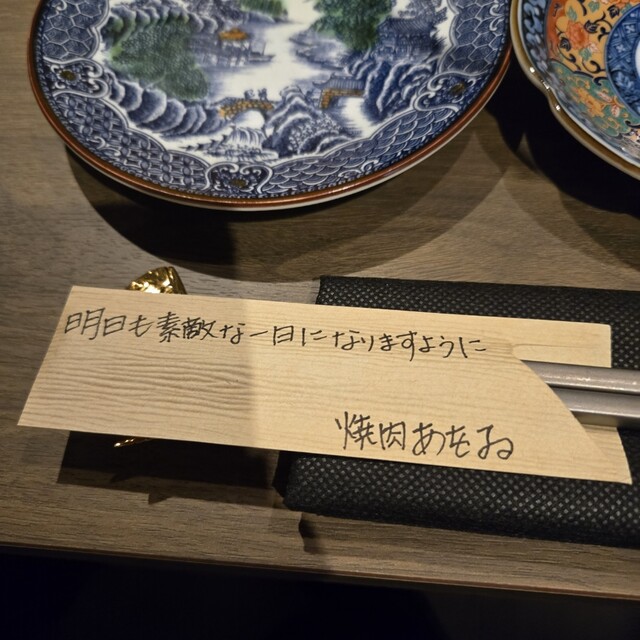 明日も素敵な一日になりますように
焼肉あをゐ